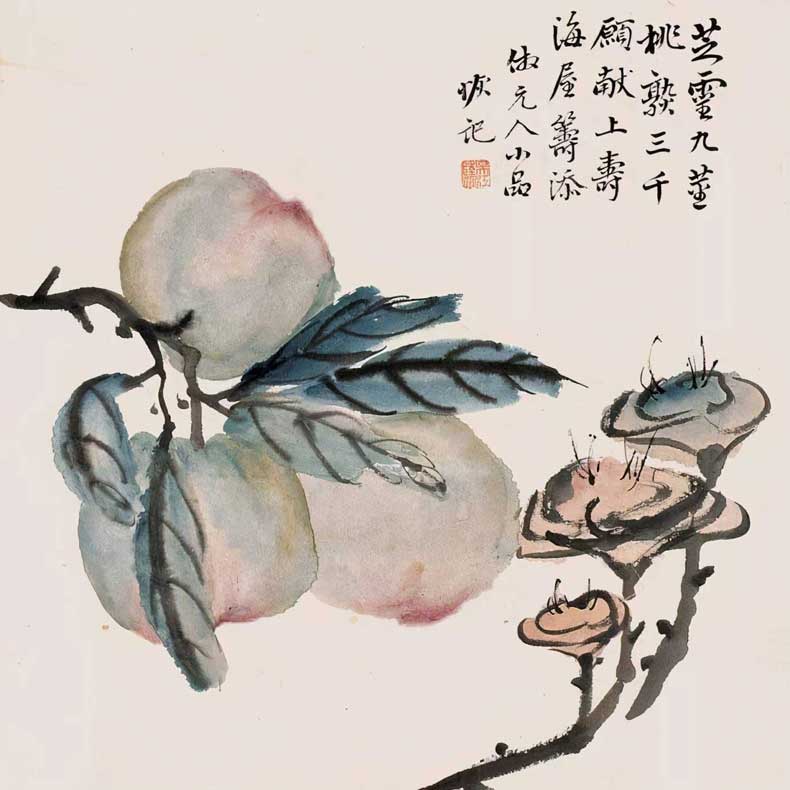 芝靈九莖
桃熟三千
願献上壽
海屋籌添
倣元人小品
記